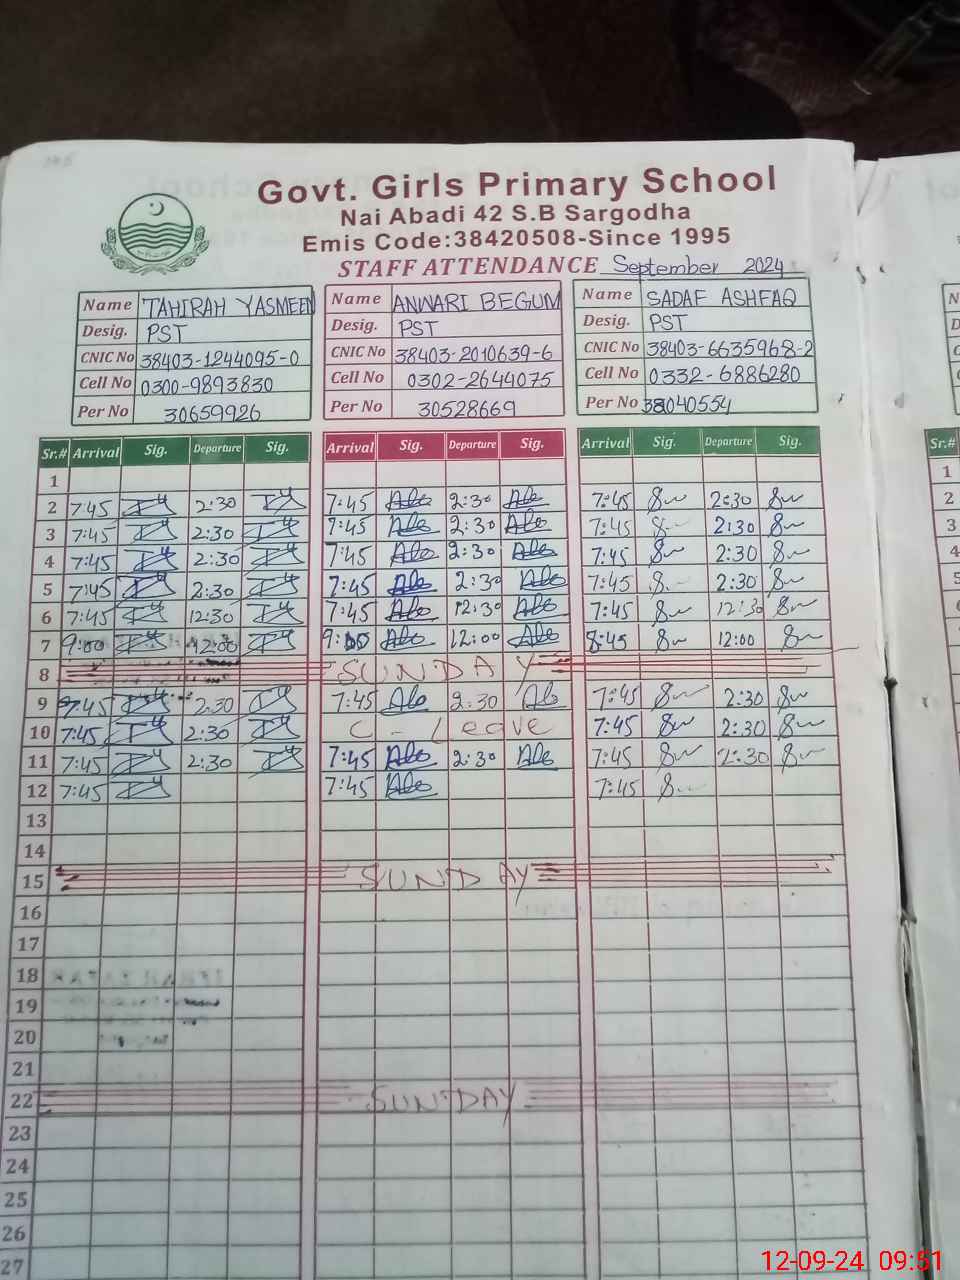 Govt. Girls Primary School
Nai Abadi 42 S.B Sargodha
Emis Code:38420508-Since 1995
STAFF ATTENDANCE September 2024
Name TAHIRAH YASMEEN Name ANWARI BEGUM Name SADAF ASHFAQ
Desig. PST Desig. PST Desig. PST
CNIC No 38403-1244095-0 CNIC No 38403-2010639-6 CNIC No 38403-6635968-2
Cell No 0300-9893830 Cell No 0302-2644075 Cell No 0332-6886280
Per No 30659926 Per No 30528669 Per No
Sr.# Arrival Sig. Departure Sig. Arrival Sig. Departure Sig. Arrival Sig. Departure Sig.
1
2 7:45 2:30 7:45 2:30 7:45 2:30
3 7:45 2:30 7:45 2:30 7:45 2:30
4 7:45 2:30 7:45 2:30 7:45 2:30
5 7:45 2:30 7:45 2:30 7:45 2:30
6 7:45 12:30 7:45 12:30 7:45 12:30
7 9:00 12:00 9:00 12:00 8:45 12:00
8 SUNDAY
9 7:45 2:30 7:45 2:30 7:45 2:30
10 7:45 2:30 C - Leave 7:45 2:30
11 7:45 2:30 7:45 2:30 7:45 2:30
12 7:45 7:45 7:45
13
14
15 SUNDAY
16
17
18
19
20
21
22 SUNDAY
23
24
25
26
27
1
2
3
4
5
12-09-24 09:51